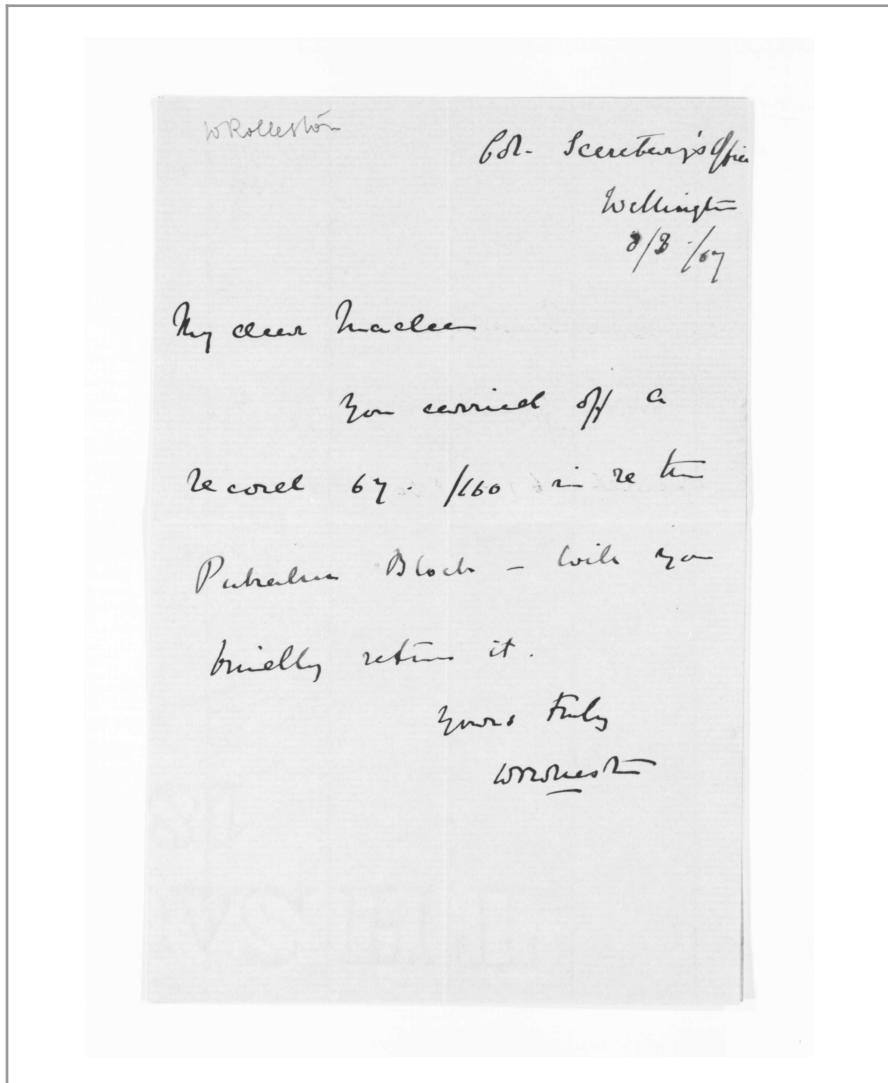 W Rolleston
Col. Secretary's Office
Wellington
8/8/67
My dear Maclean
You carried off a
record 67./160 in re the
Block - Will you
kindly return it.
Yours truly
W Rolleston